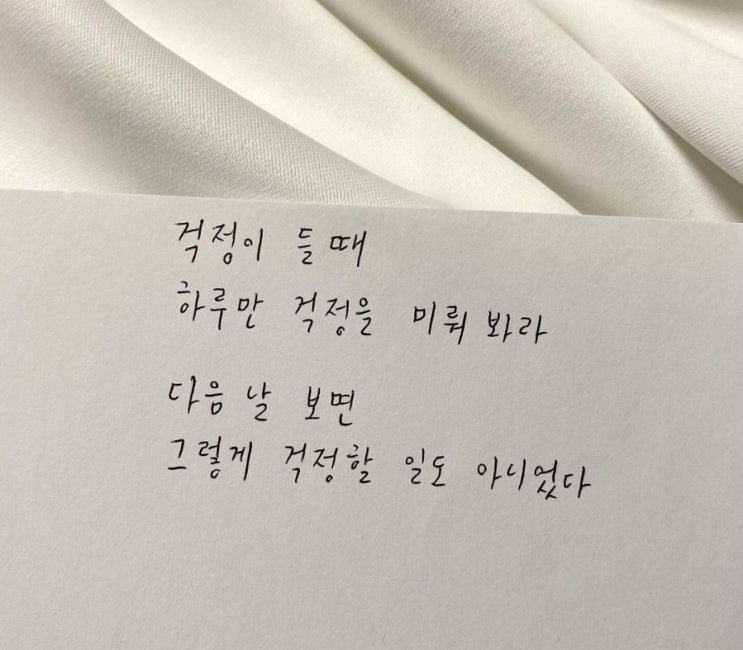 걱정이 들 때
하루만 걱정을 미뤄 봐라
다음 날 보면
그렇게 걱정할 일도 아니었다